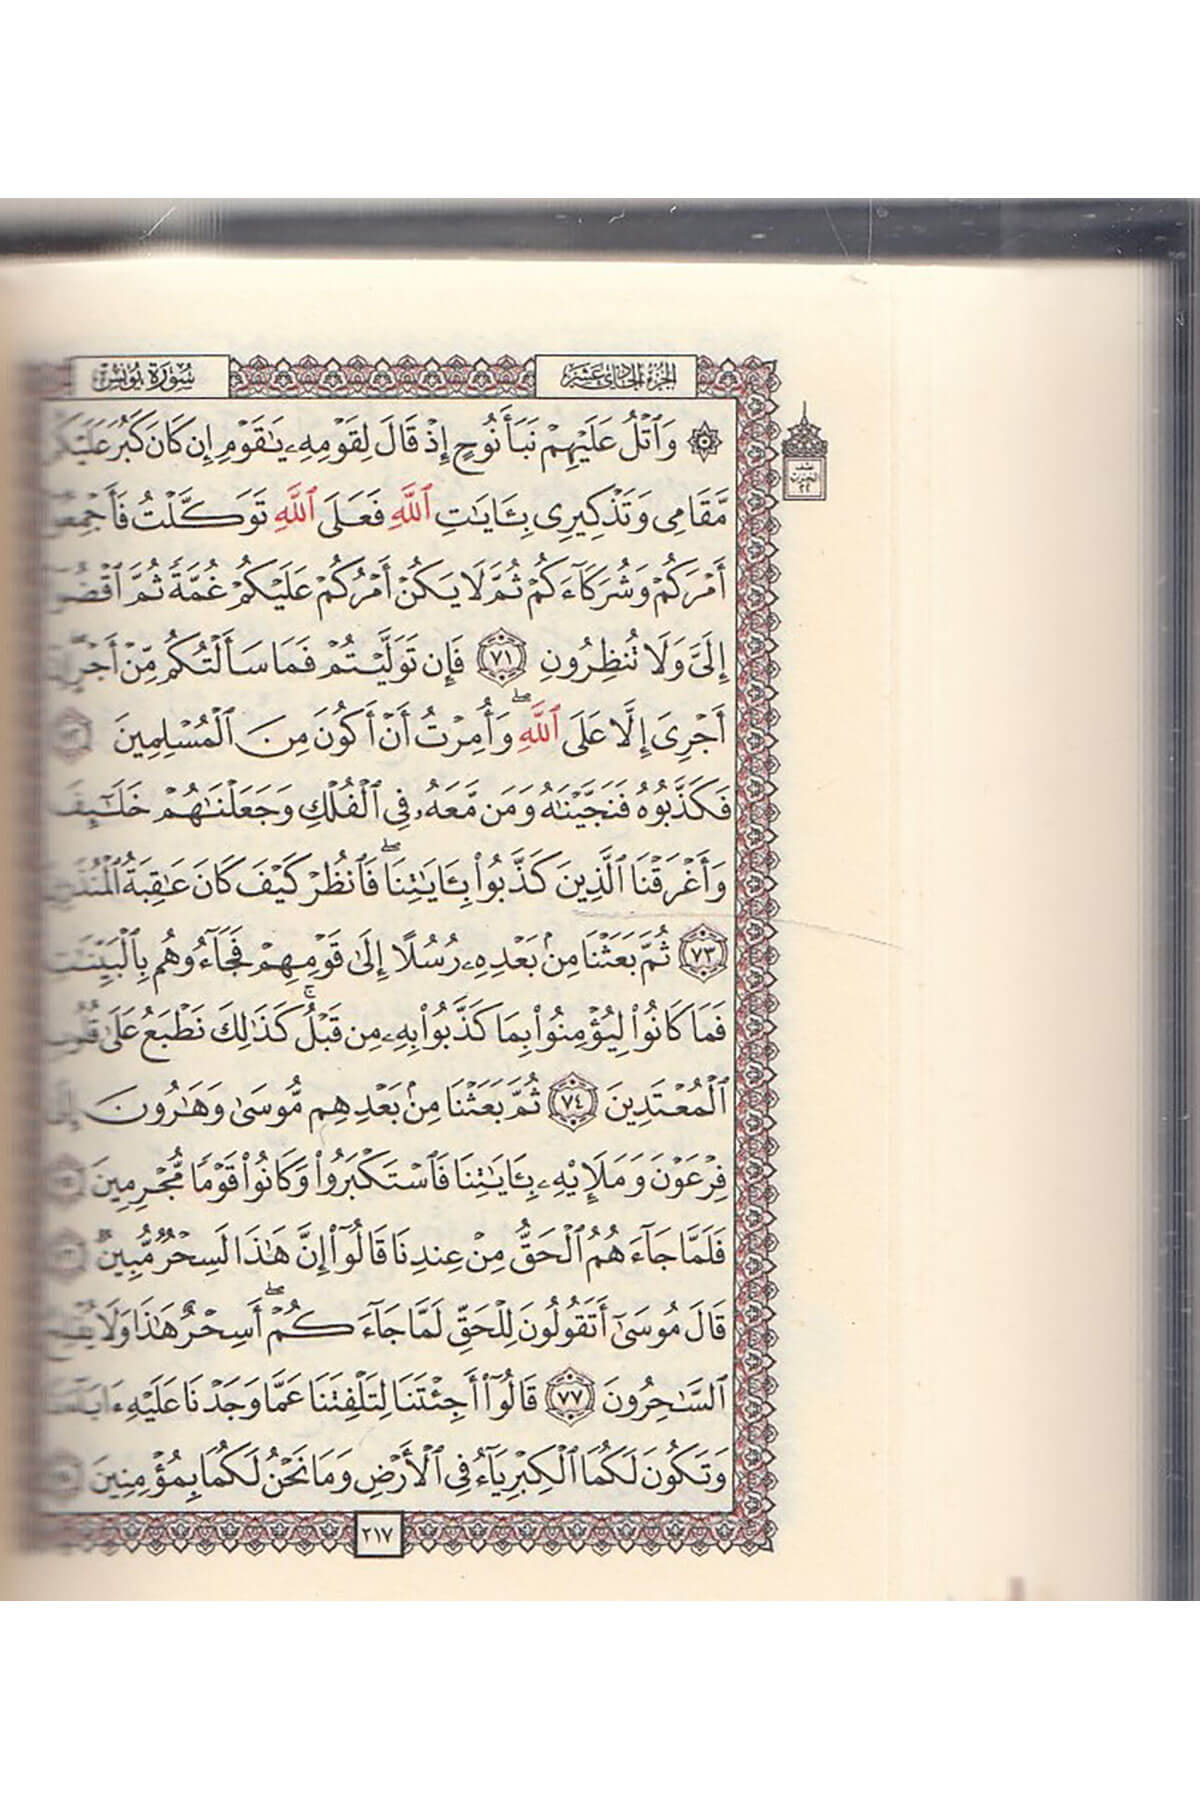 سُورَةُ يُونُسَ
الجُزْءُ الحَادِي عَشَرَ
۞ وَٱتْلُ عَلَيْهِمْ نَبَأَ نُوحٍ إِذْ قَالَ لِقَوْمِهِۦ يَٰقَوْمِ إِن كَانَ كَبُرَ عَلَيْكُم
مَّقَامِى وَتَذْكِيرِى بِـَٔايَٰتِ ٱللَّهِ فَعَلَى ٱللَّهِ تَوَكَّلْتُ فَأَجْمِعُوٓا۟
أَمْرَكُمْ وَشُرَكَآءَكُمْ ثُمَّ لَا يَكُنْ أَمْرُكُمْ عَلَيْكُمْ غُمَّةً ثُمَّ ٱقْضُوٓا۟
إِلَىَّ وَلَا تُنظِرُونِ ٧١ فَإِن تَوَلَّيْتُمْ فَمَا سَأَلْتُكُم مِّنْ أَجْرٍ إِنْ
أَجْرِىَ إِلَّا عَلَى ٱللَّهِ ۖ وَأُمِرْتُ أَنْ أَكُونَ مِنَ ٱلْمُسْلِمِينَ ٧٢
فَكَذَّبُوهُ فَنَجَّيْنَٰهُ وَمَن مَّعَهُۥ فِى ٱلْفُلْكِ وَجَعَلْنَٰهُمْ خَلَٰٓئِفَ
وَأَغْرَقْنَا ٱلَّذِينَ كَذَّبُوا۟ بِـَٔايَٰتِنَا ۖ فَٱنظُرْ كَيْفَ كَانَ عَٰقِبَةُ ٱلْمُنذَرِينَ
٧٣ ثُمَّ بَعَثْنَا مِنۢ بَعْدِهِۦ رُسُلًا إِلَىٰ قَوْمِهِمْ فَجَآءُوهُم بِٱلْبَيِّنَٰتِ
فَمَا كَانُوا۟ لِيُؤْمِنُوا۟ بِمَا كَذَّبُوا۟ بِهِۦ مِن قَبْلُ ۚ كَذَٰلِكَ نَطْبَعُ عَلَىٰ قُلُوبِ
ٱلْمُعْتَدِينَ ٧٤ ثُمَّ بَعَثْنَا مِنۢ بَعْدِهِم مُّوسَىٰ وَهَٰرُونَ إِلَىٰ
فِرْعَوْنَ وَمَلَإِي۟هِۦ بِـَٔايَٰتِنَا فَٱسْتَكْبَرُوا۟ وَكَانُوا۟ قَوْمًا مُّجْرِمِينَ ٧٥
فَلَمَّا جَآءَهُمُ ٱلْحَقُّ مِنْ عِندِنَا قَالُوٓا۟ إِنَّ هَٰذَا لَسِحْرٌ مُّبِينٌ ٧٦
قَالَ مُوسَىٰٓ أَتَقُولُونَ لِلْحَقِّ لَمَّا جَآءَكُمْ ۖ أَسِحْرٌ هَٰذَا وَلَا يُفْلِحُ
ٱلسَّٰحِرُونَ ٧٧ قَالُوٓا۟ أَجِئْتَنَا لِتَلْفِتَنَا عَمَّا وَجَدْنَا عَلَيْهِ ءَابَآءَنَا
وَتَكُونَ لَكُمَا ٱلْكِبْرِيَآءُ فِى ٱلْأَرْضِ وَمَا نَحْنُ لَكُمَا بِمُؤْمِنِينَ ٧٨
٢١٧